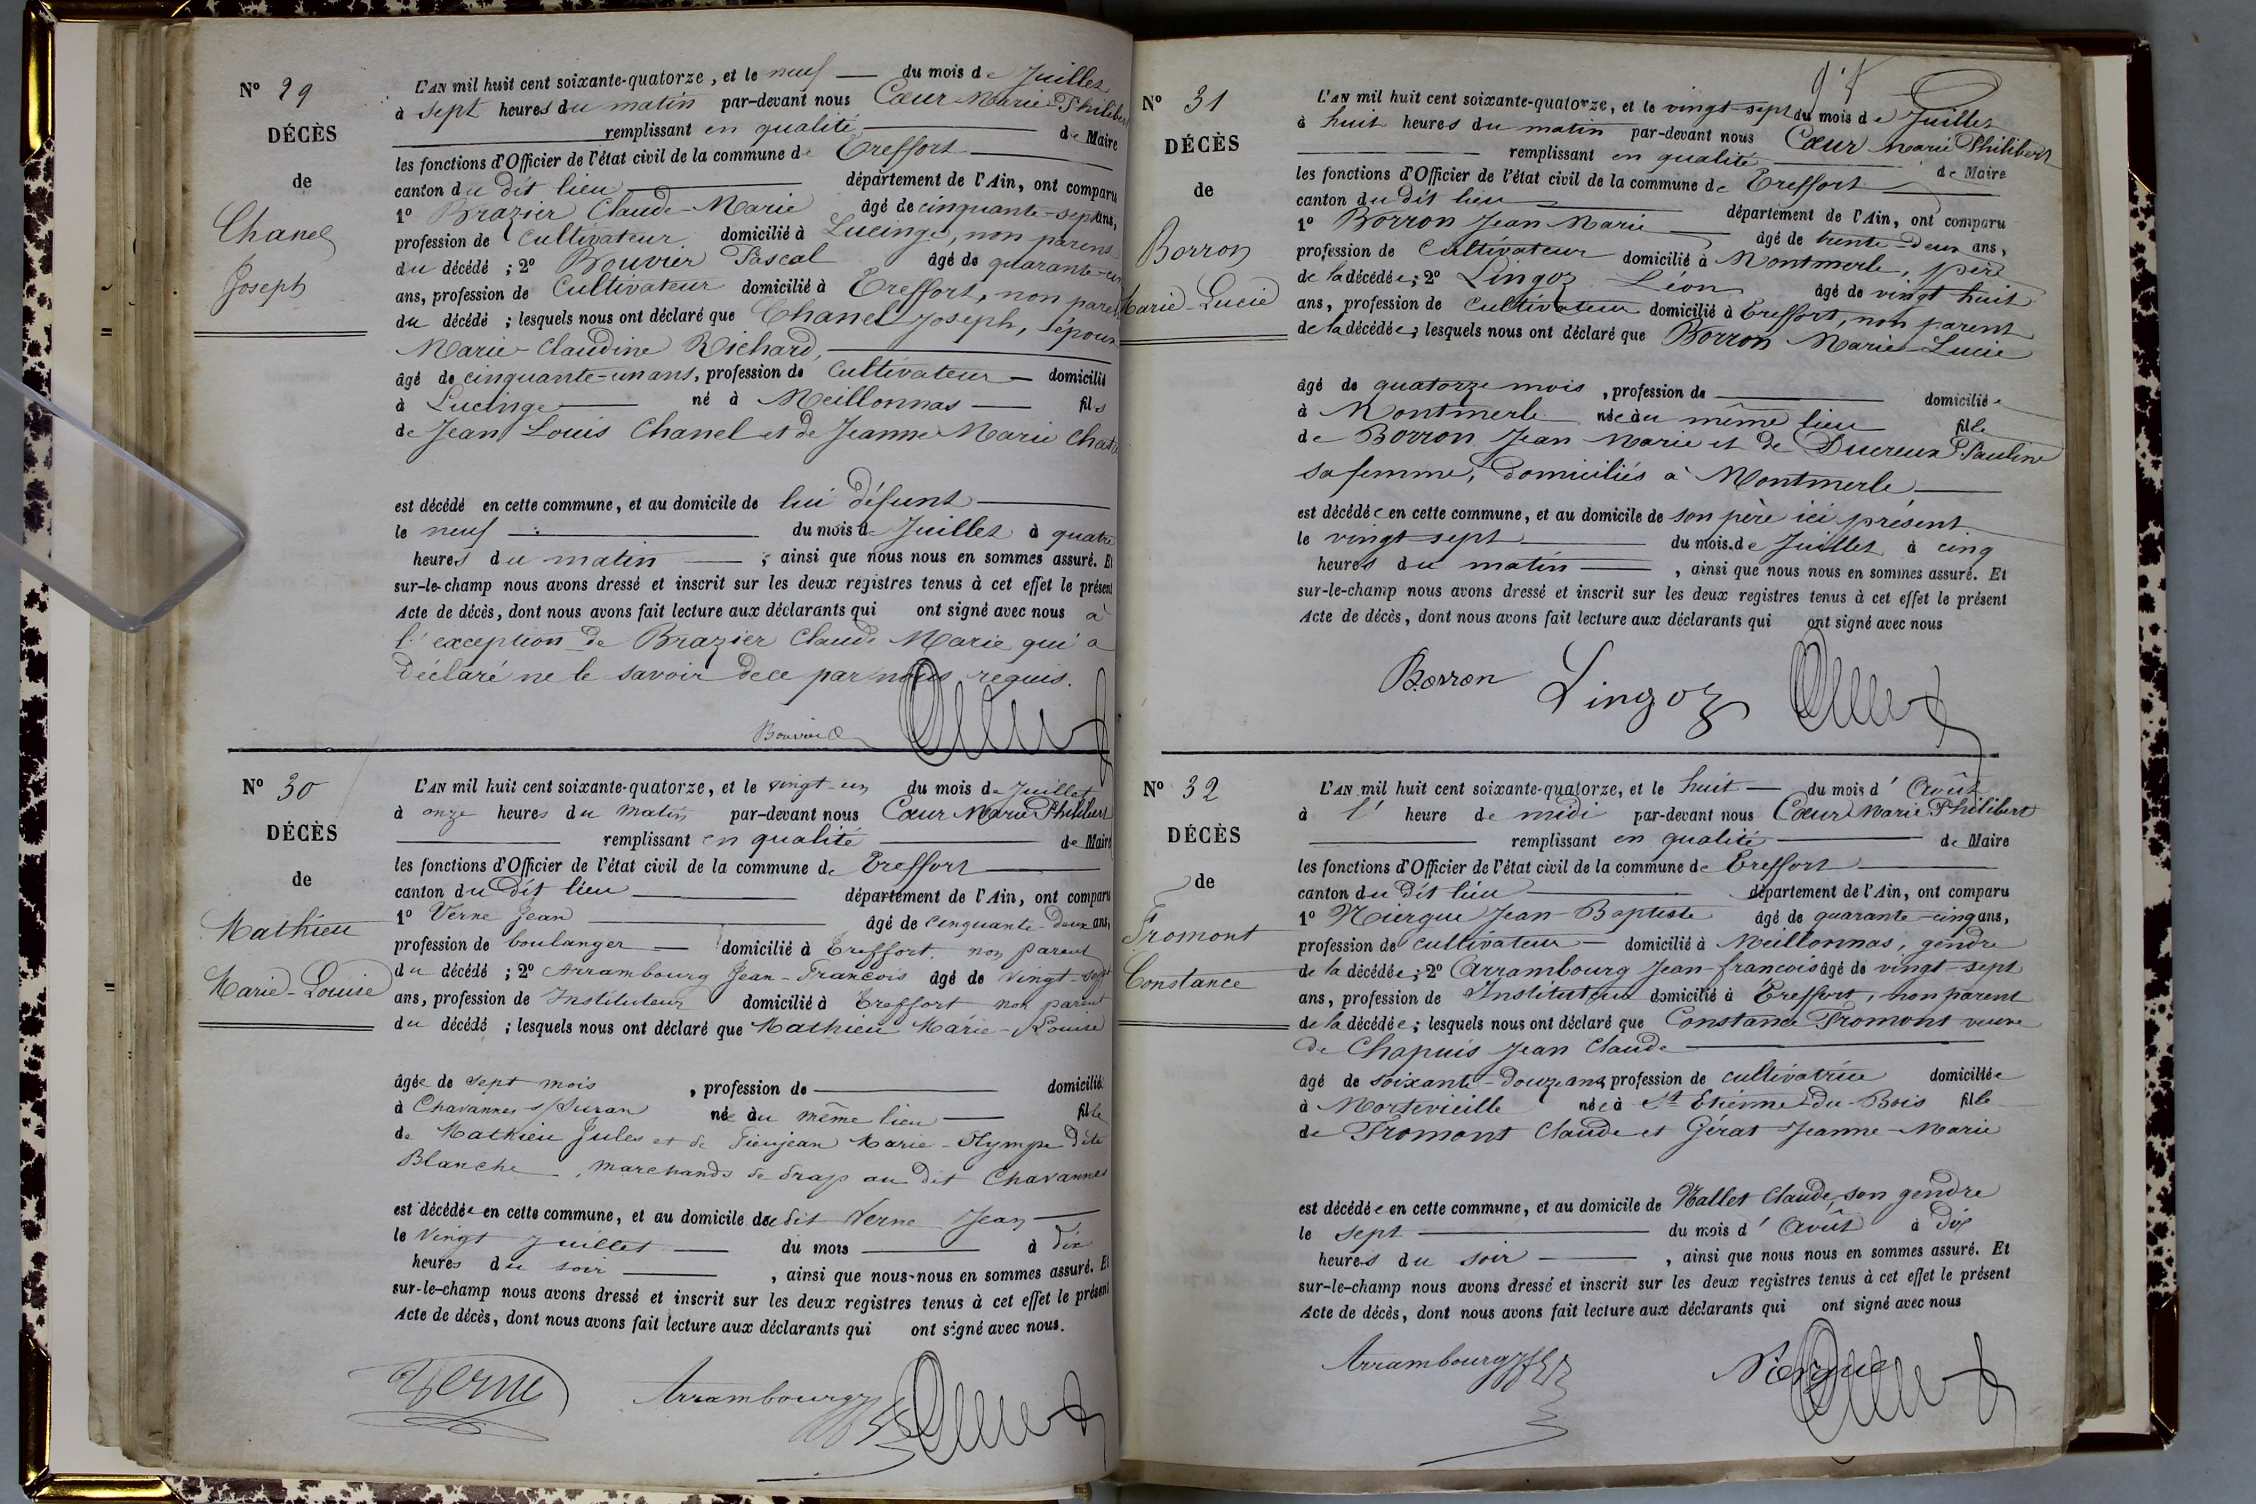 N° 29
DÉCÈS
de
Chanel
Joseph
L'AN mil huit cent soixante-quatorze, et le neuf du mois de Juillet
à sept heures du matin par-devant nous Cœur Marie Philibert
remplissant en qualité de Maire
les fonctions d'Officier de l'état civil de la commune de Treffort
canton du dit lieu département de l'Ain, ont comparu
1° Brazier Claude-Marie âgé de cinquante-sept ans,
profession de cultivateur domicilié à Lucinge, non parent
du décédé ; 2° Bouvier Pascal âgé de quarante-un
ans, profession de Cultivateur domicilié à Treffort, non parent
du décédé ; lesquels nous ont déclaré que Chanel Joseph, époux
Marie-Claudine Richard,
âgé de cinquante-un ans, profession de Cultivateur domicilié
à Lucinge né à Meillonnas fils
de Jean Louis Chanel et de Jeanne Marie
est décédé en cette commune, et au domicile de lui défunt
le neuf du mois de Juillet à quatre
heures du matin ; ainsi que nous nous en sommes assuré. Et
sur-le-champ nous avons dressé et inscrit sur les deux registres tenus à cet effet le présent
Acte de décès, dont nous avons fait lecture aux déclarants qui ont signé avec nous à
l'exception de Brazier Claude Marie qui a
déclaré ne le savoir de ce par nous requis.
Bouvier
N° 30
DÉCÈS
de
Mathieu
Marie-Louise
L'AN mil huit cent soixante-quatorze, et le vingt-un du mois de Juillet
à onze heures du matin par-devant nous Cœur Marie Philibert
remplissant en qualité de Maire
les fonctions d'Officier de l'état civil de la commune de Treffort
canton du dit lieu département de l'Ain, ont comparu
1° Verne Jean âgé de cinquante-deux ans,
profession de boulanger domicilié à Treffort, non parent
du décédé ; 2° Arrambourg Jean-François âgé de vingt-sept
ans, profession de Instituteur domicilié à Treffort non parent
du décédé ; lesquels nous ont déclaré que Mathieu Marie-Louise
âgée de sept mois, profession de domicilié
à Chavannes s/Suran née au même lieu fille
de Mathieu Jules et de Tieujean Marie-Olympe dite
Blanche, marchands de drap au dit Chavannes
est décédée en cette commune, et au domicile de dit Verne Jean
le vingt juillet du mois à dix
heures du soir, ainsi que nous-nous en sommes assuré. Et
sur-le-champ nous avons dressé et inscrit sur les deux registres tenus à cet effet le présent
Acte de décès, dont nous avons fait lecture aux déclarants qui ont signé avec nous.
Verne Arrambourg
N° 31
DÉCÈS
de
Borron
Marie-Lucie
L'AN mil huit cent soixante-quatorze, et le vingt-sept du mois de Juillet
à huit heures du matin par-devant nous Cœur Marie Philibert
remplissant en qualité de Maire
les fonctions d'Officier de l'état civil de la commune de Treffort
canton du dit lieu département de l'Ain, ont comparu
1° Borron Jean Marie âgé de trente-deux ans,
profession de Cultivateur domicilié à Montmerle, père
de la décédée ; 2° Lingoz Léon âgé de vingt huit
ans, profession de cultivateur domicilié à Treffort, non parent
de la décédée ; lesquels nous ont déclaré que Borron Marie-Lucie
âgé de quatorze mois, profession de domiciliée
à Montmerle née au même lieu fille
de Borron Jean Marie et de Ducreux Pauline
sa femme, domiciliés à Montmerle
est décédée en cette commune, et au domicile de son père ici présent
le vingt-sept du mois de Juillet à cinq
heures du matin, ainsi que nous nous en sommes assuré. Et
sur-le-champ nous avons dressé et inscrit sur les deux registres tenus à cet effet le présent
Acte de décès, dont nous avons fait lecture aux déclarants qui ont signé avec nous
Borron Lingoz
N° 32
DÉCÈS
de
Fromont
Constance
L'AN mil huit cent soixante-quatorze, et le huit du mois d'Août
à l'heure de midi par-devant nous Cœur Marie Philibert
remplissant en qualité de Maire
les fonctions d'Officier de l'état civil de la commune de Treffort
canton du dit lieu département de l'Ain, ont comparu
1° Niergue Jean-Baptiste âgé de quarante-cinq ans,
profession de cultivateur domicilié à Meillonnas, gendre
de la décédée ; 2° Arrambourg Jean-françois âgé de vingt-sept
ans, profession de Instituteur domicilié à Treffort, non parent
de la décédée ; lesquels nous ont déclaré que Constance Fromont veuve
de Chapuis Jean Claude
âgé de soixante-douze ans, profession de cultivatrice domiciliée
à Mortevieille née à St Etienne-du-Bois fille
de Fromont Claude et Gérat Jeanne-Marie
est décédée en cette commune, et au domicile de Mallet Claude, son gendre
le sept du mois d'Août à dix
heures du soir, ainsi que nous nous en sommes assuré. Et
sur-le-champ nous avons dressé et inscrit sur les deux registres tenus à cet effet le présent
Acte de décès, dont nous avons fait lecture aux déclarants qui ont signé avec nous
Arrambourg Niergue